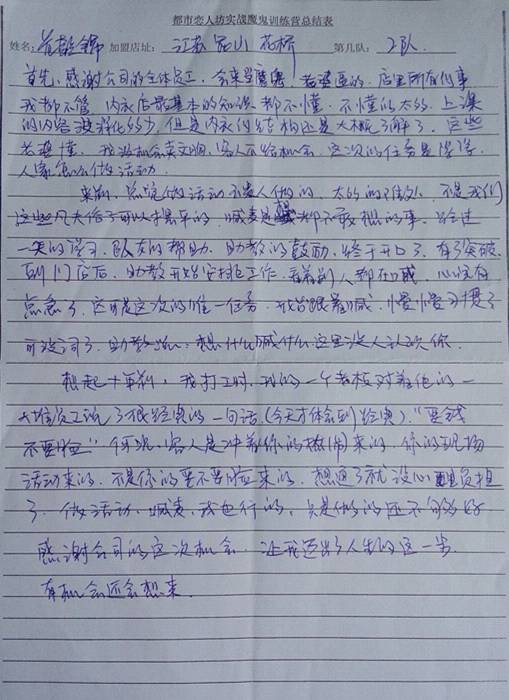 都市恋人坊实战魔鬼训练营总结表
姓名: 加盟店址: 江苏昆山花桥 第几队: 2队
首先,感谢公司的全体员工, 店里所有的事
我都不管,内衣店最基本的知识都不懂,不懂的太多,上课
的内容没消化多少,但是内衣的结构还是大概了解了,这些
客人不给机会,这次的任务是学学
人家怎么做活动
来前,总觉做活动不是人做的,太 不是我们
这些凡夫俗子可以 的,喊麦是想都不敢想的事,经过
一天的学习,队友的帮助,助教的鼓励,终于开口了,有了突破
到门店后,助教开始安排工作,看着别人都在喊,心里有
点急了,这可是这次的唯一任务,我台跟着喊,慢慢习惯了
可没词了,助教说,想什么喊什么这里没人认识你
想起十年前,我打工时,我的一个老板对着他的一
大堆员工说了很经典的一句话(今天才体会到经典)"要钱
不要脸"何况,客人是冲着你的 来的,你的现场
活动来的,不是你的要不要脸来的,想通了就没心理负担
了,做活动,喊麦,我也行的,只是做的还不够好
感谢公司的这次机会,让我迈出了人生的这一步
有机会还会想来